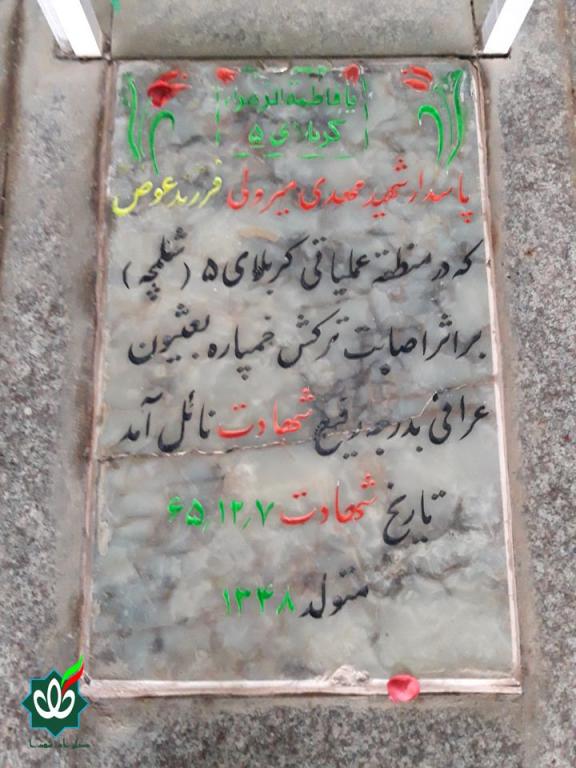 یا فاطمة الزهرا
کربلای ۵
پاسدار شهید مهدی میرولی فرزند عوض
که در منطقه عملیاتی کربلای ۵ (شلمچه)
بر اثر اصابت ترکش خمپاره بعثیون
عراقی بدرجه رفیع شهادت نائل آمد
تاریخ شهادت ۶۵٫۱۲٫۷
متولد ۱۳۴۸